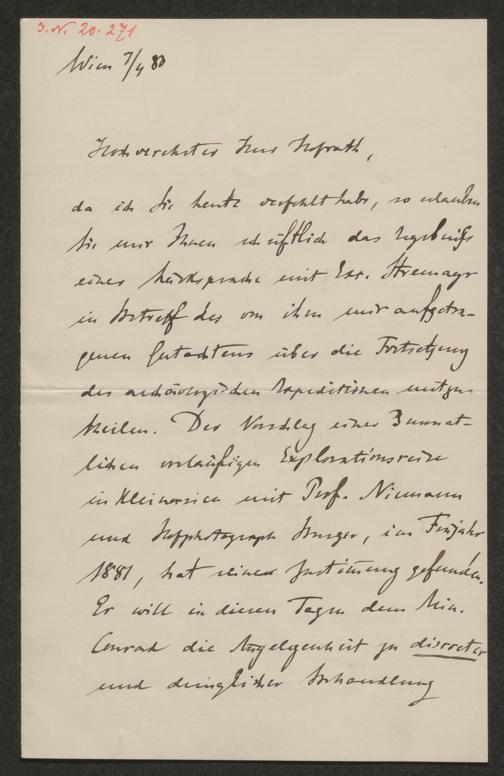 J.N. 20.271
Wien 7/4 80
Hochverehrter Herr Hofrath,
da ich Sie heute verfehlt habe, so erlauben
Sie mir Ihnen schriftlich das Ergebniss
einer Rücksprache mit Exc. Stremayr
in Betreff des von ihm mir aufgetra-
genen Gutachtens über die Fortsetzung
der archäologischen Expeditionen mitzu-
theilen. Der Vorschlag einer 3 monat-
lichen vorläufigen Explorationsreise
in Kleinasien mit Prof. Niemann
und Hofphotograph Burger, im Frühjahr
1881, hat seine Zustimmung gefunden.
Er will in diesen Tagen dem Min.
Conrad die Angelegenheit zu discreter
und dringlicher Behandlung